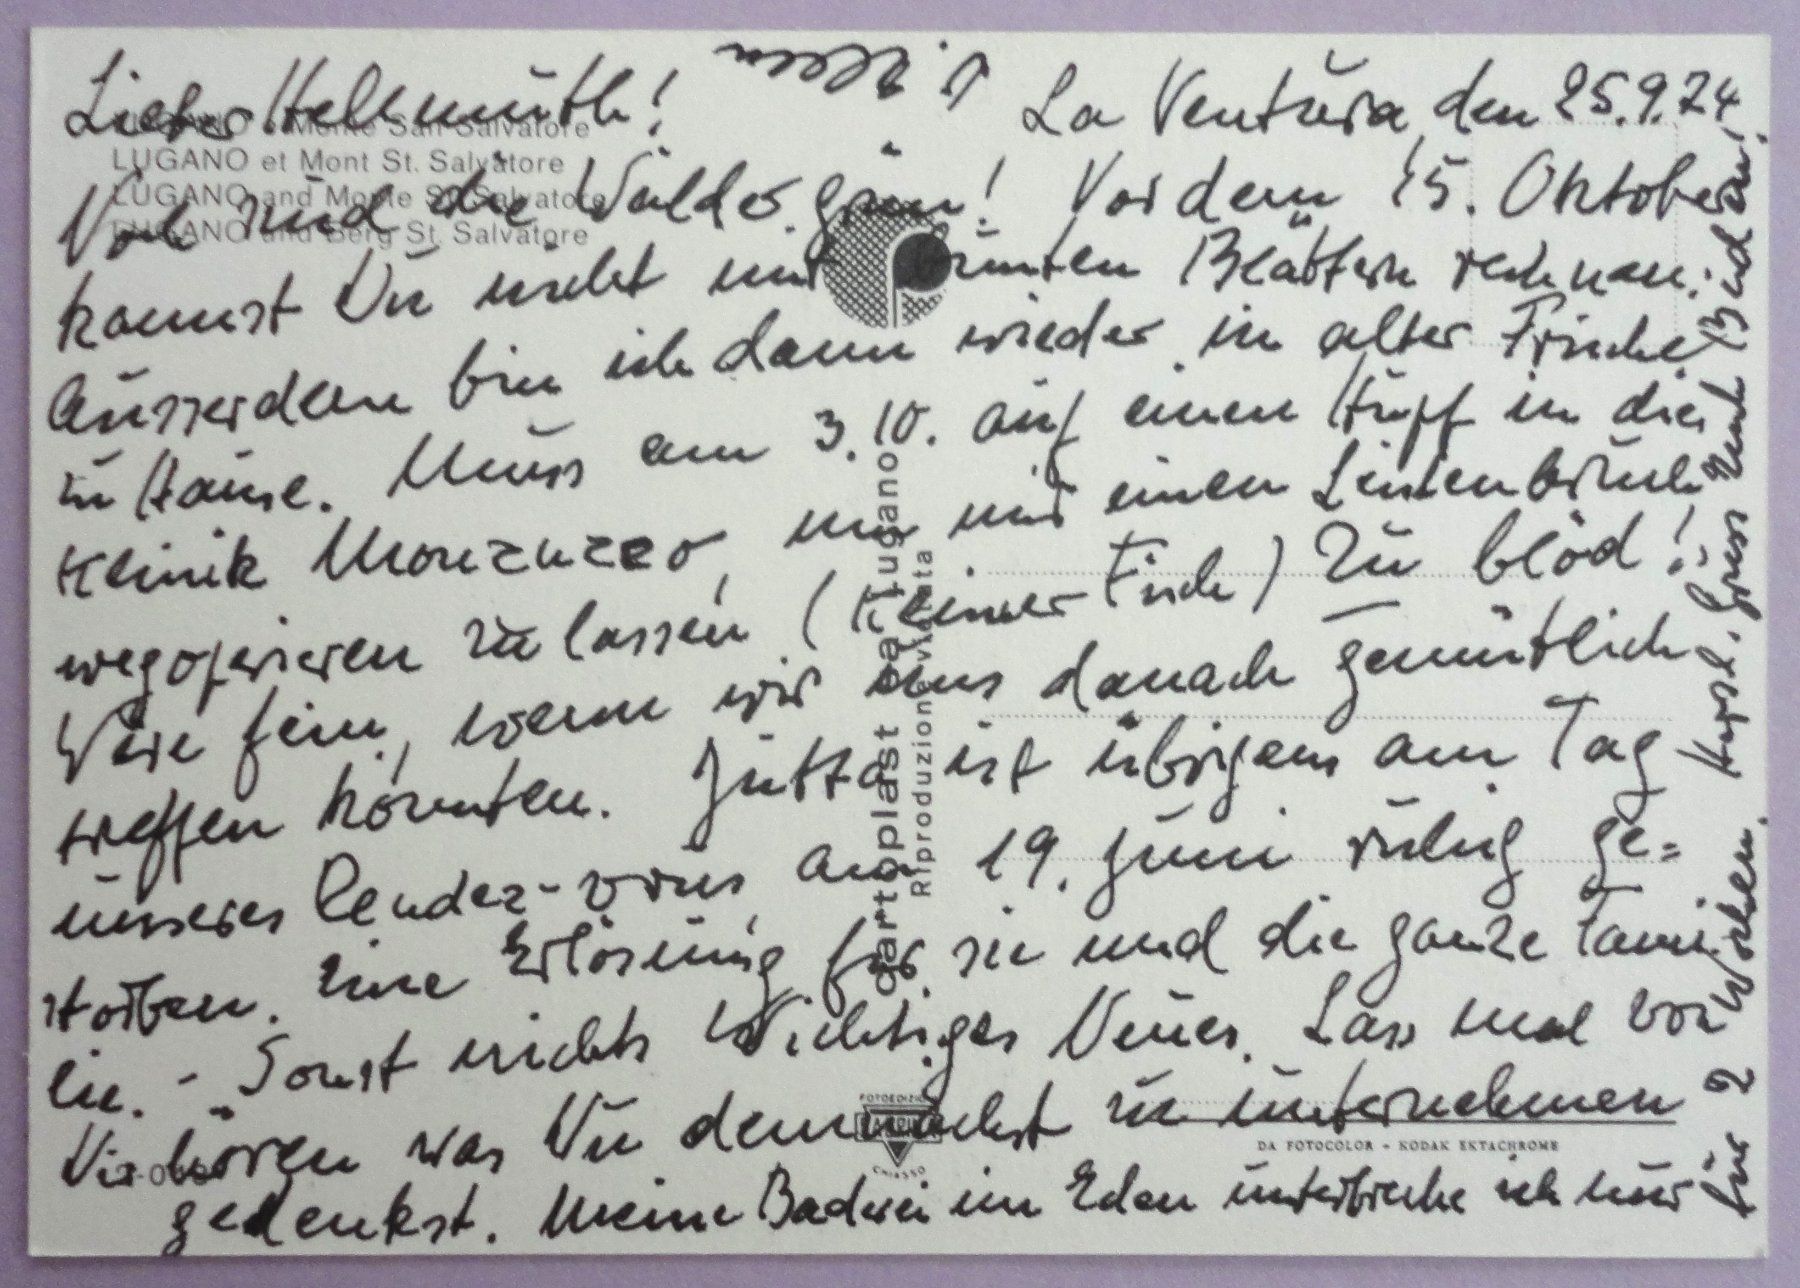 La Ventura, den 25.9.74
Lieber Hellmuth!
Noch sind die Wälder grün! Vor dem 15. Oktober
kannst Du nicht mit bunten Blättern rechnen.
Ausserdem bin ich dann wieder in alter Frische
zu Hause. Muss am 3.10. auf einen Hupf in die
Klinik Moncucco, um mir einen Leistenbruch
wegoperieren zu lassen (Kleiner Fisch) Zu blöd!
Wäre fein, wenn wir uns danach gemütlich
treffen könnten. Jutta ist übrigens am Tag
unseres Rendez-vous am 19. Juni ruhig ge=
storben. Eine Erlösung für sie und die ganze Fami
lie. - Sonst nichts Wichtiges Neues. Lass mal von
Dir hören was Du demnächst zu unternehmen
gedenkst. Meine Baderei im Eden unterbreche ich nur
für 2 Wochen. Herzl. Gruss
LUGANO e Monte San Salvatore
LUGANO et Mont St. Salvatore
LUGANO and Monte St. Salvatore
LUGANO und Berg St. Salvatore
cartoplast sa lugano
Riproduzione vietata
FOTOEDIZIONI
CHIASSO
DA FOTOCOLOR - KODAK EKTACHROME